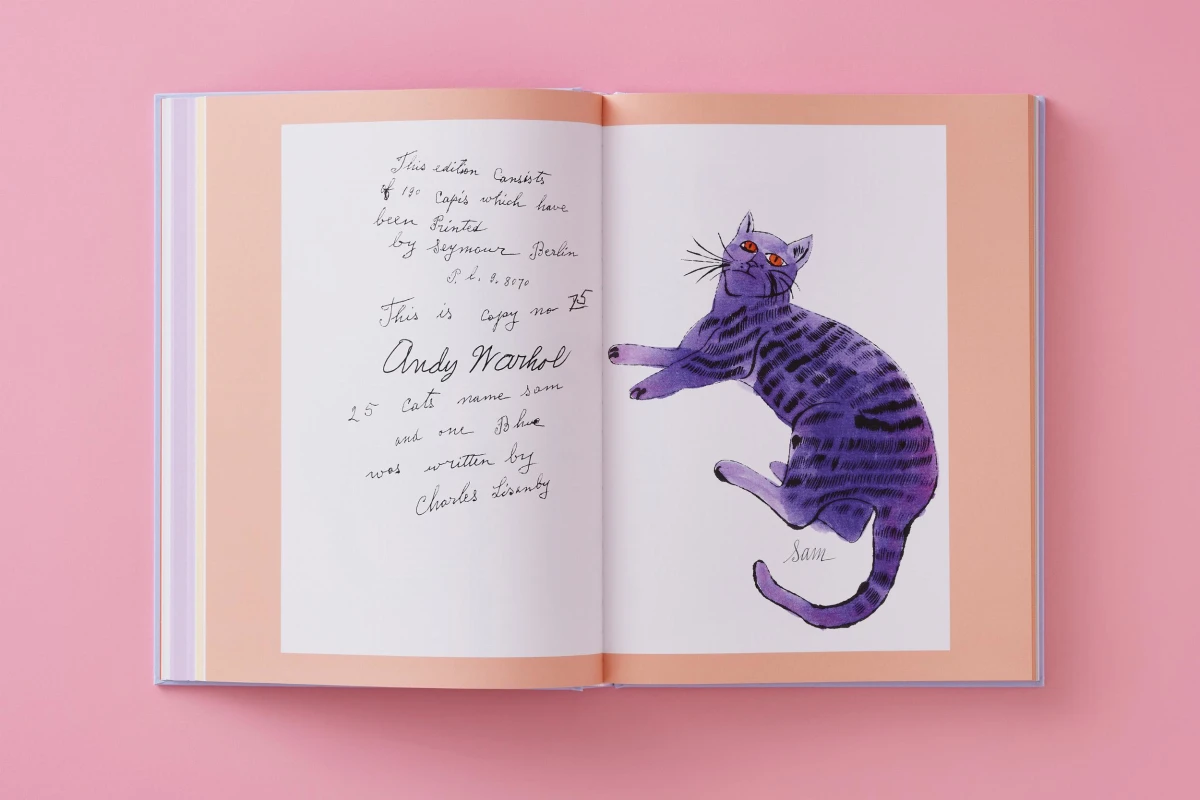 This edition Consists
of 190 Capis which have
been Printed
by Seymour Berlin
P. l. 9. 8070
This is copay no 75
Andy Warhol
25 Cats name sam
and one Blue
was written by
Charles Lisanby
Sam